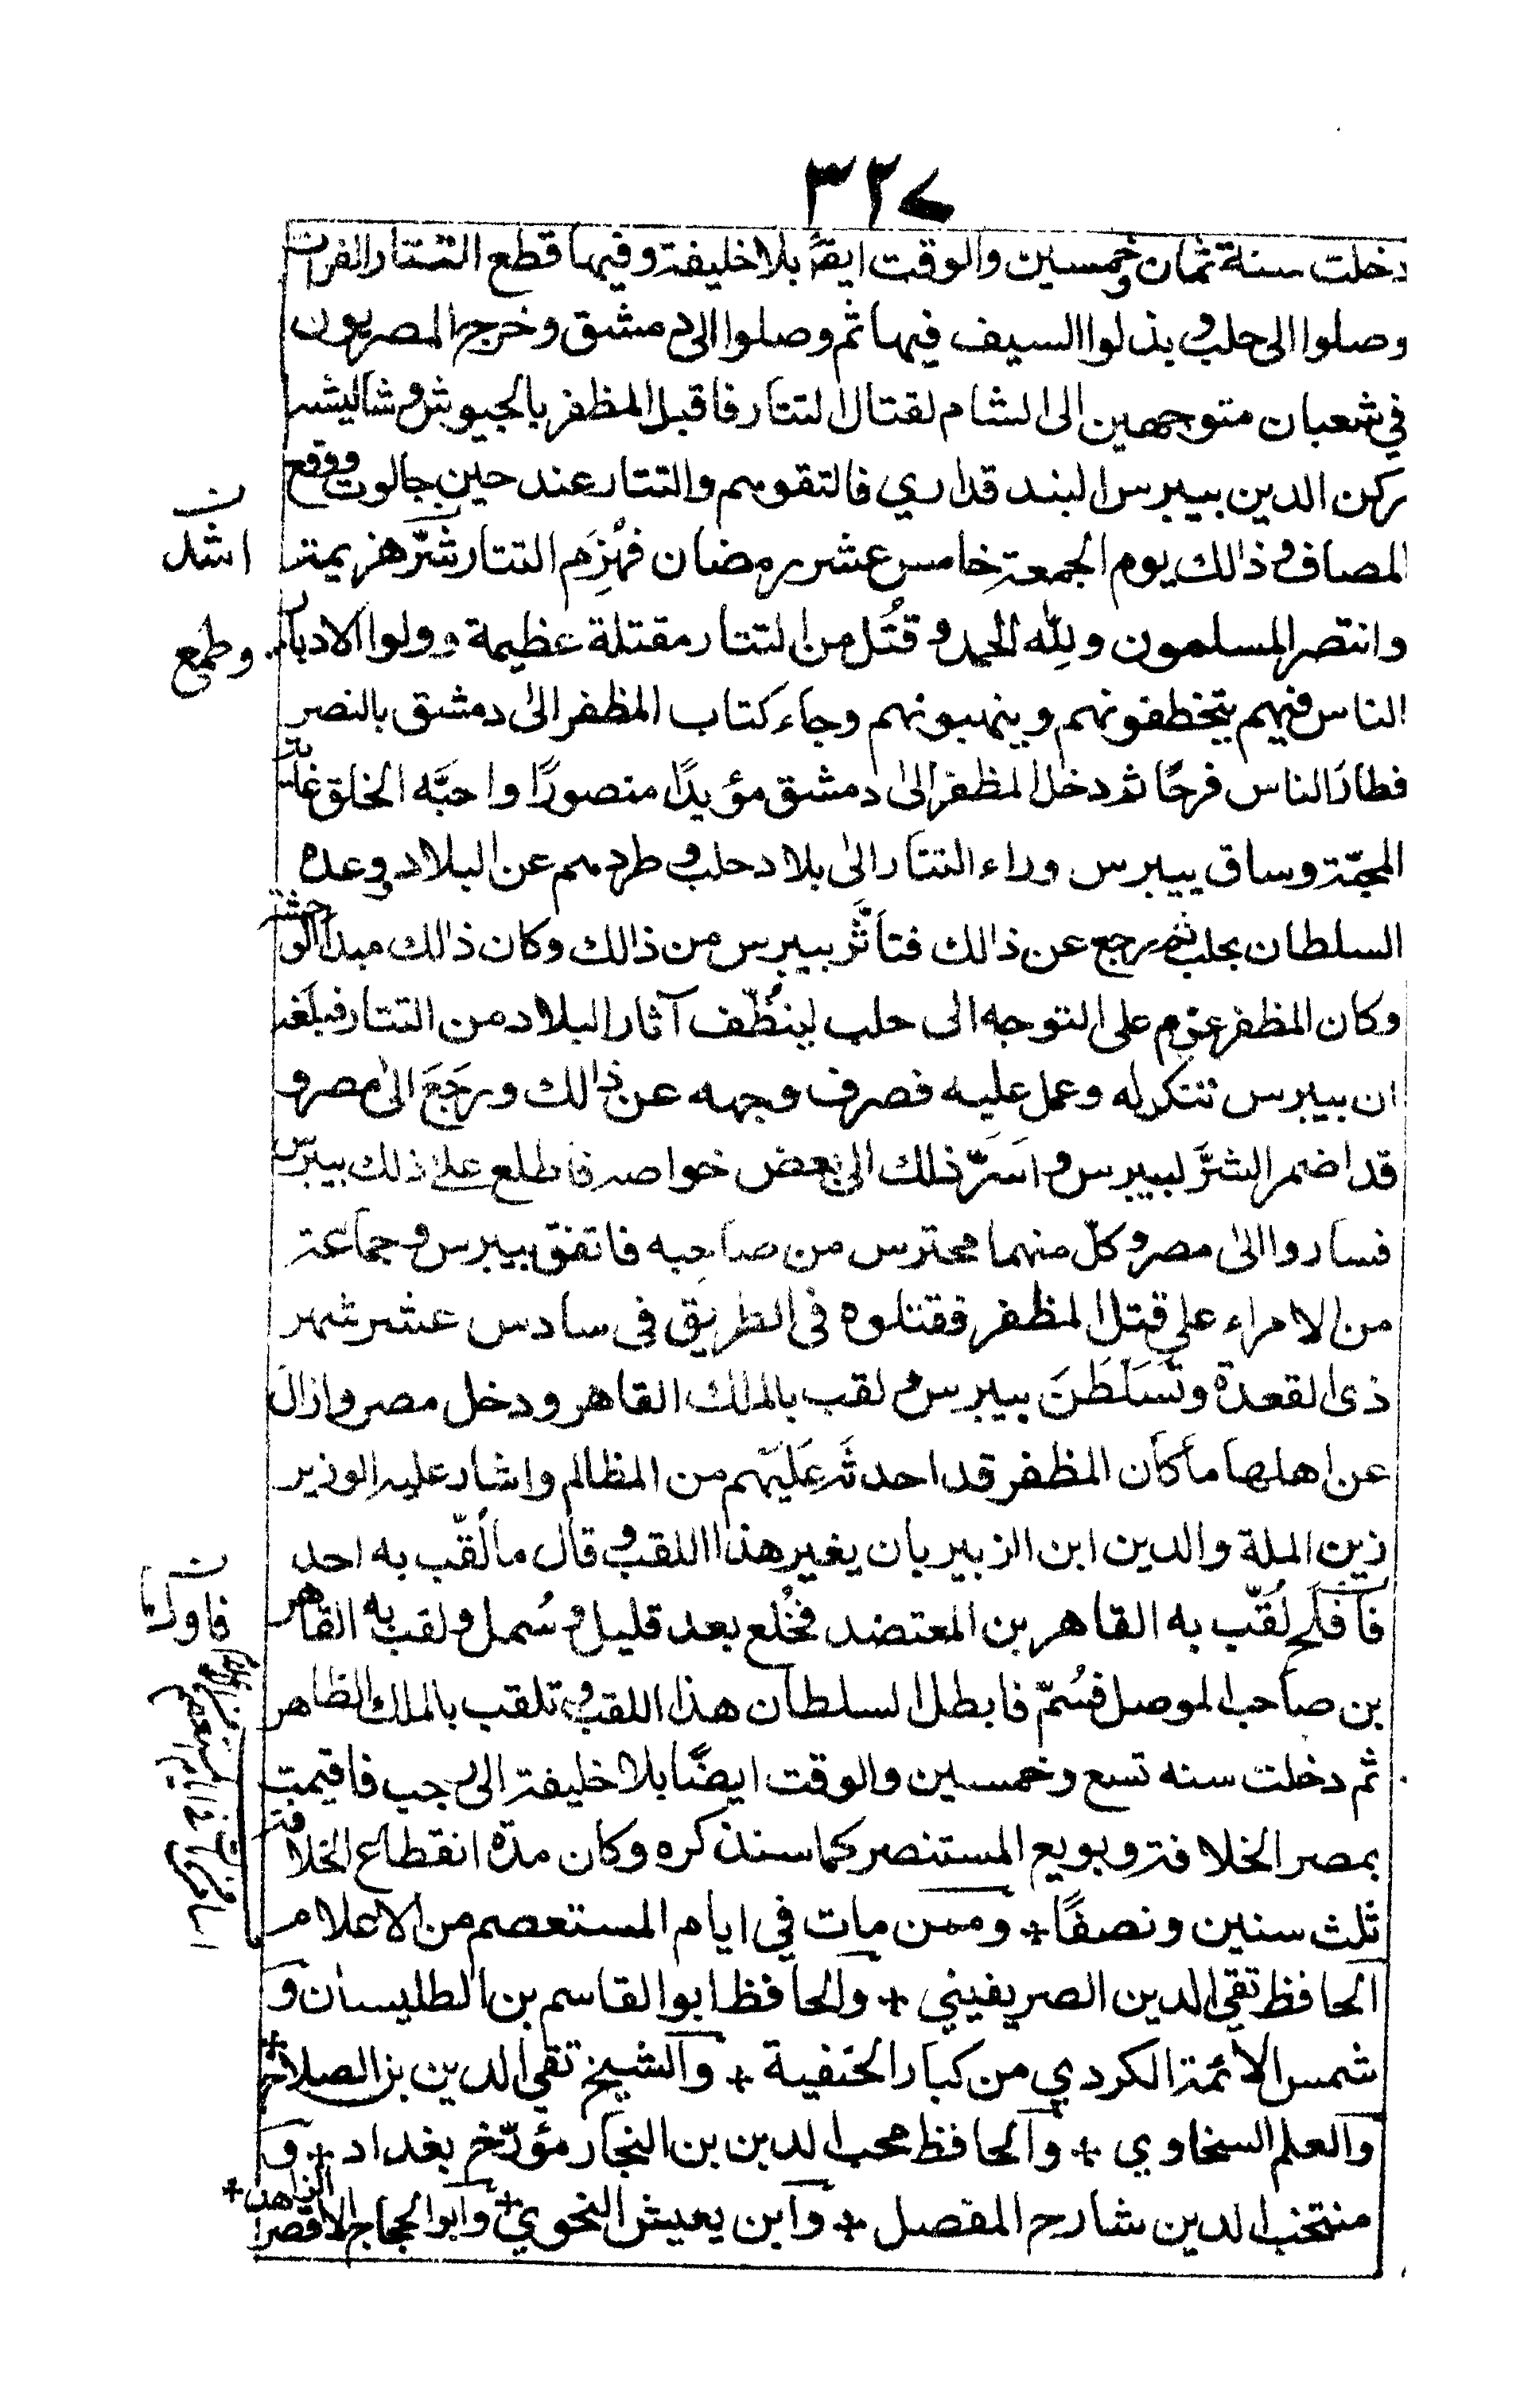 ٣٢٧
دخلت سنة ثمان وخمسين والوقت ايضًا بلا خليفة وفيها قطع التتار الفرات
وصلوا الى حلب و بذلوا السيف فيها ثم وصلوا الى دمشق وخرج المصريون
في شعبان متوجهين الى الشام لقتال التتار فاقبل المظفر بالجيوش و شاليشه
ركن الدين بيبرس البند قداري فالتقوهم والتتار عند حين جالوت ووقع
المصاف و ذالك يوم الجمعة خامس عشر رمضان فهُزِمَ التتار شرَّ هزيمة
اشد
وانتصر المسلمون ولِلّٰه الحمد و قتُل من التتار مقتلة عظيمة وولوا الادبار
وطمع
الناس فيهم يتخطفونهم و ينهبونهم وجاء كتاب المظفر الى دمشق بالنصر
فطارَ الناس فرحًا ثم دخل المظفر الى دمشق مؤيدًا منصورًا واحبَّه الخلق غاية
المحبّة وساق بيبرس وراء التتار الى بلاد حلب و طردهم عن البلاد و وعده
السلطان بحلب ثم رجع عن ذالك فتأثَّر بيبرس من ذالك وكان ذالك مبدأ الوحشة
وكان المظفر عزم على التوجه الى حلب لينظّف آثار البلاد من التتار فبلغه
ان بيبرس تنكر له وعمل عليه فصرف وجهه عن ذالك ورجَعَ الى مصر و
قد اضمر الشرَّ لبيبرس و اسَرَّ ذلك الى بعض خواصه فاطلع على ذلك بيبرس
فساروا الى مصر و كلّ منهما محترس من صاحِبه فاتفق بيبرس و جماعة
من الامراء على قتل المظفر فقتلوه فى الطريق فى سادس عشر شهر
ذى القعدة وتَسَلْطَنَ بيبرس و لقب بالملك القاهر و دخل مصر وازال
عن اهلها ما كان المظفر قد احدثه عَلَيْهم من المظالم واشار عليه الوزير
زين الملة والدين ابن الزبير بان يغير هذا اللقب و قال ما لُقّب به احد
فافلَح لُقّب به القاهر بن المعتضد فخُلع بعد قليل و سُمل و لقب به القاهر
بن صاحب الموصل فسُمّ فابطل السلطان هذا اللقب و تلقب بالملك الظاهر
ثم دخلت سنه تسع وخمسين والوقت ايضًا بلا خليفة الى رجب فاقيمت
بمصر الخلافة وبويع المستنصر كما سنذكره وكان مدة انقطاع الخلافة
ثلث سنين ونصفًا + وممن مات في ايام المستعصم من الاعلام
الحافظ تقي الدين الصريفيني + والحافظ ابو القاسم بن الطليسان و
شمس الائمة الكردي من كبار الحنفية + والشيخ تقي الدين بن الصلاح +
والعلم السخاوي + والحافظ محب الدين بن النجار مؤرّخ بغداد + و
منتخب الدين شارح المفصل + وابن يعيش النحوي + وابو الحجاج الاقصرا الزاهد +